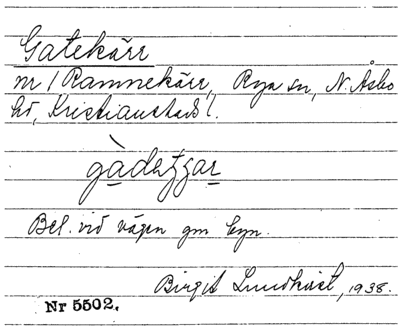 Gatekärr
nr 1 Ramnekärr, Rya sn, N. Åsbo
hd, Kristianstads l.
gàdetʃar
Bel. vid vägen gm byn.
Birgit Lundkvist, 1938.
Nr 5502.